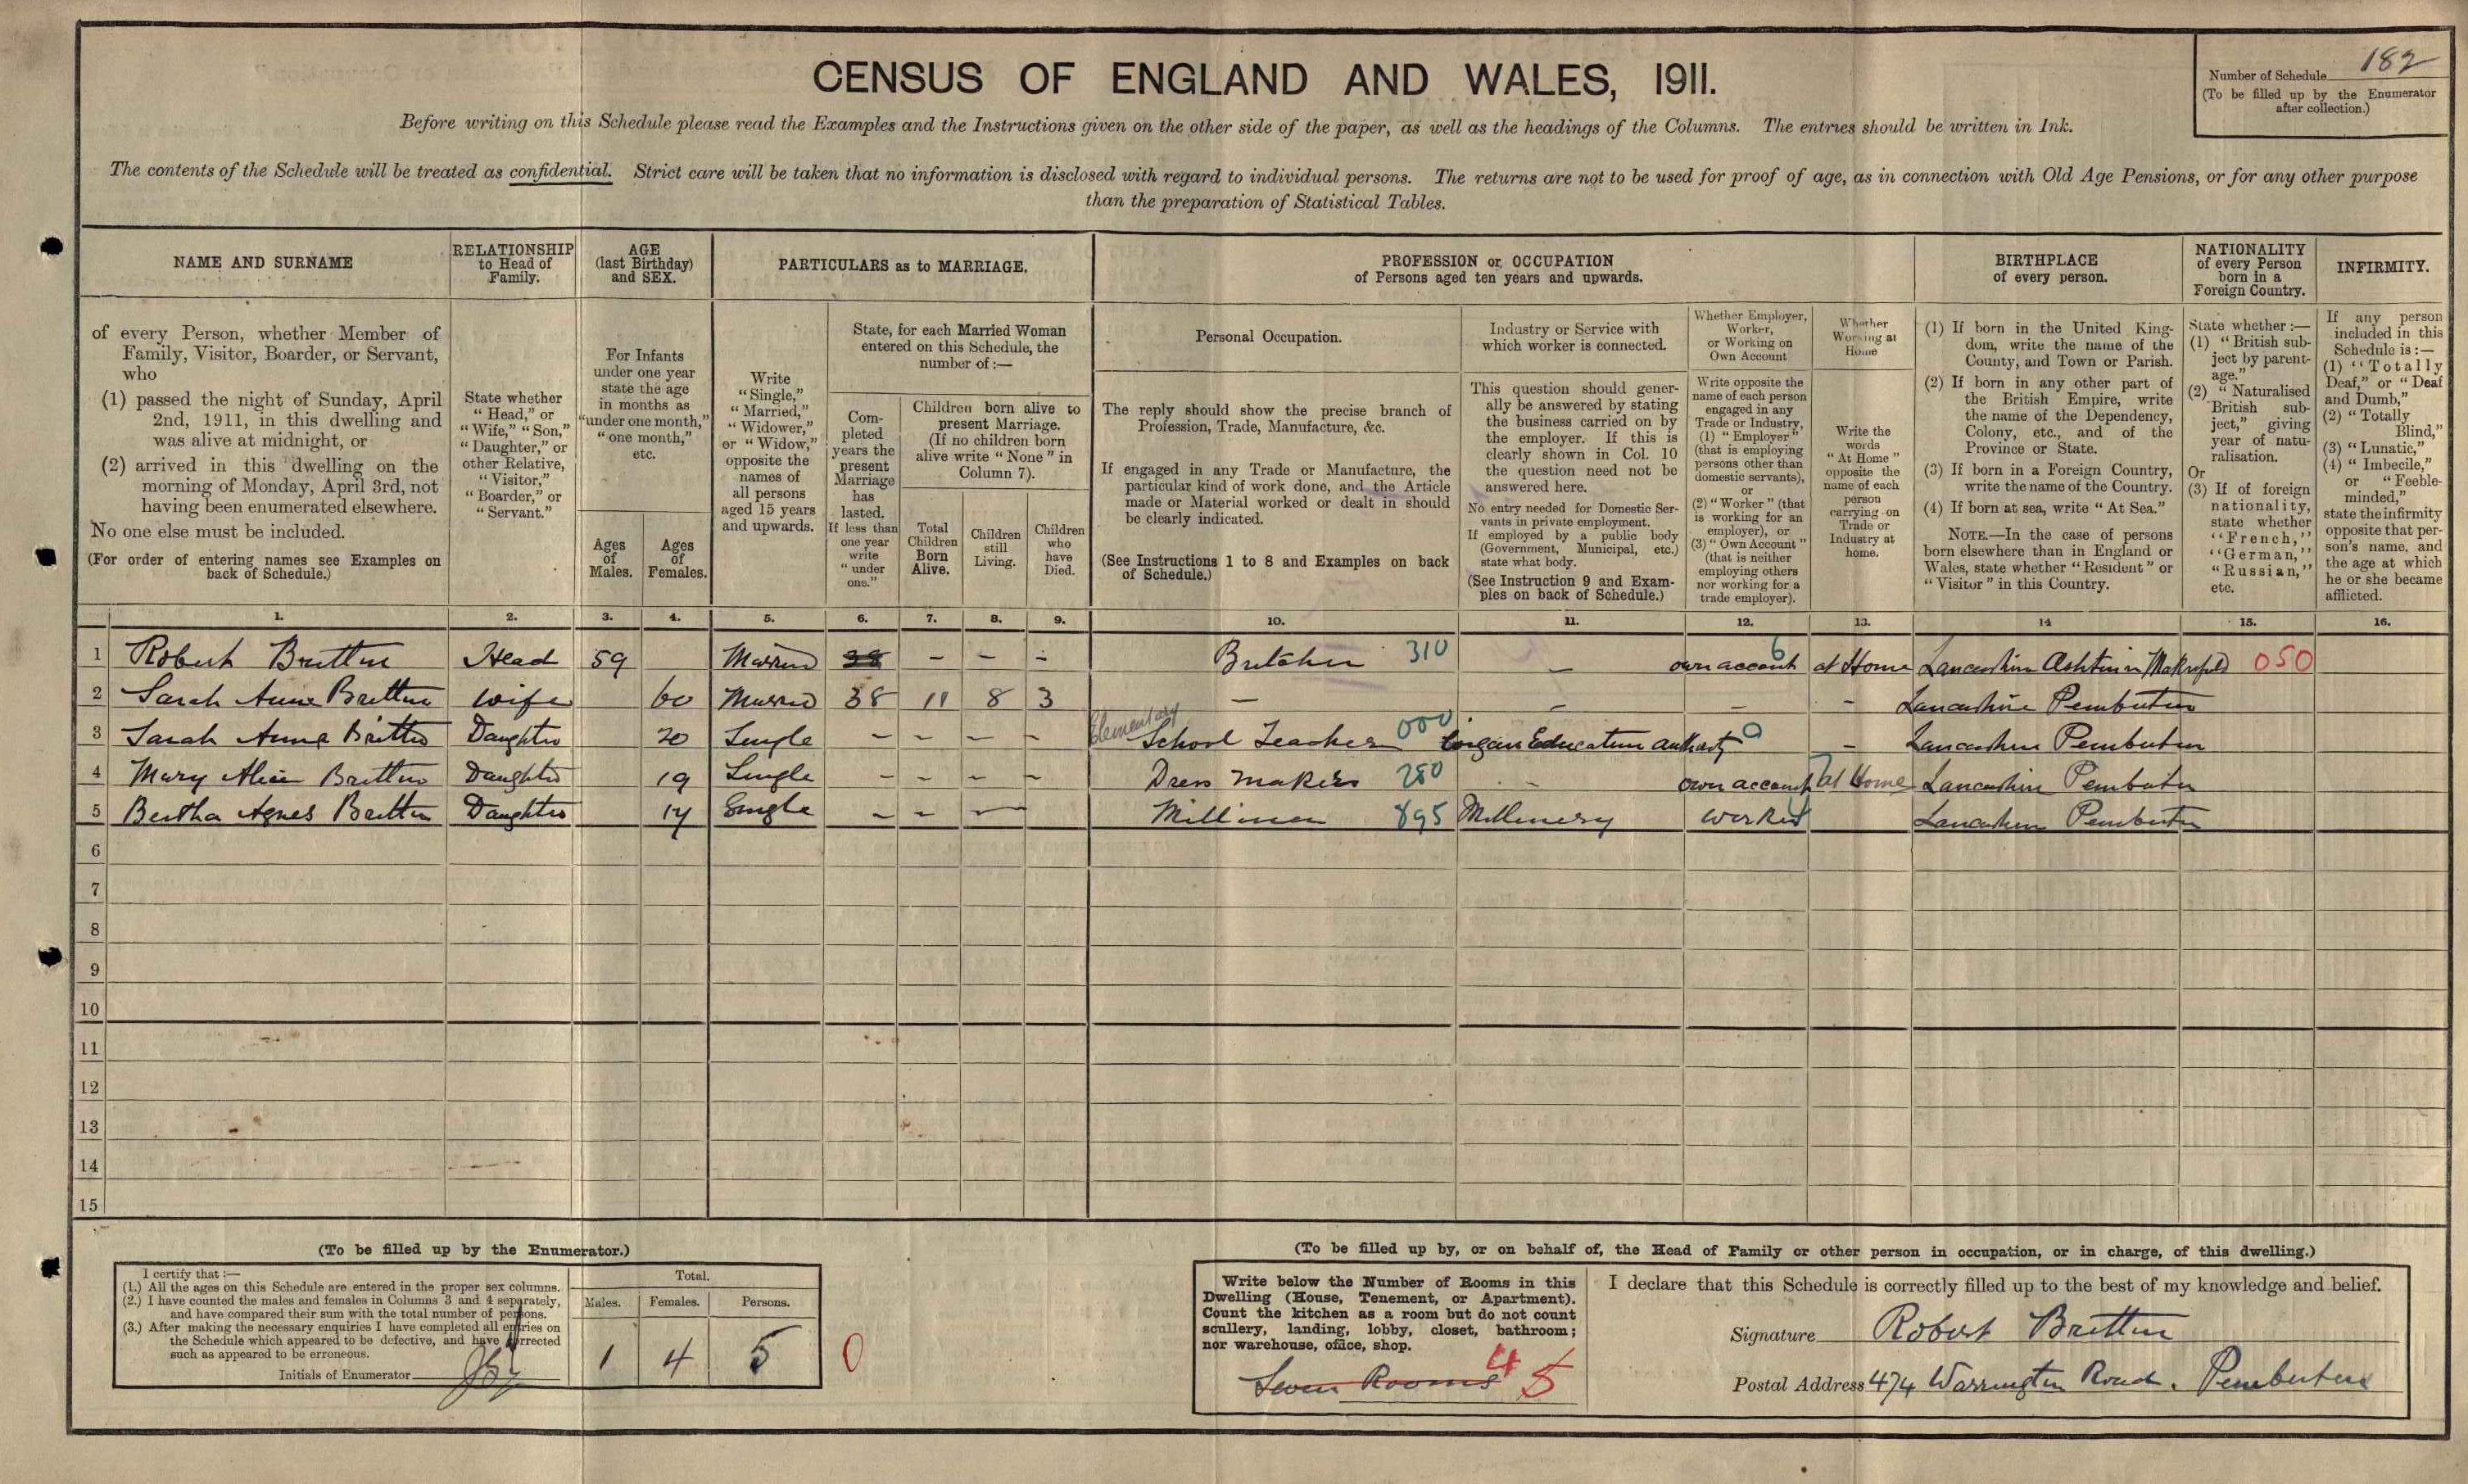 CENSUS OF ENGLAND AND WALES, 1911.
Number of Schedule 182
(To be filled up by the Enumerator
after collection.)
Before writing on this Schedule please read the Examples and the Instructions given on the other side of the paper, as well as the headings of the Columns. The entries should be written in Ink.
The contents of the Schedule will be treated as confidential. Strict care will be taken that no information is disclosed with regard to individual persons. The returns are not to be used for proof of age, as in connection with Old Age Pensions, or for any other purpose
than the preparation of Statistical Tables.
NAME AND SURNAME
of every Person, whether Member of
Family, Visitor, Boarder, or Servant,
who
(1) passed the night of Sunday, April
2nd, 1911, in this dwelling and
was alive at midnight, or
(2) arrived in this dwelling on the
morning of Monday, April 3rd, not
having been enumerated elsewhere.
No one else must be included.
(For order of entering names see Examples on
back of Schedule.)
RELATIONSHIP
to Head of
Family.
State whether
"Head," or
"Wife," "Son,"
"Daughter," or
other Relative,
"Visitor,"
"Boarder," or
"Servant."
AGE
(last Birthday)
and SEX.
For Infants
under one year
state the age
in months as
"under one month,"
"one month,"
etc.
Ages
of
Males.
Ages
of
Females.
PARTICULARS as to MARRIAGE.
Write
"Single,"
"Married,"
"Widower,"
or "Widow,"
opposite the
names of
all persons
aged 15 years
and upwards.
State, for each Married Woman
entered on this Schedule, the
number of:—
Com-
pleted
years the
present
Marriage
has
lasted.
If less than
one year
write
"under
one."
Children born alive to
present Marriage.
(If no children born
alive write "None" in
Column 7).
Total
Children
Born
Alive.
Children
still
Living.
Children
who
have
Died.
PROFESSION or OCCUPATION
of Persons aged ten years and upwards.
Personal Occupation.
The reply should show the precise branch of
Profession, Trade, Manufacture, &c.
If engaged in any Trade or Manufacture, the
particular kind of work done, and the Article
made or Material worked or dealt in should
be clearly indicated.
(See Instructions 1 to 8 and Examples on back
of Schedule.)
Industry or Service with
which worker is connected.
This question should gener-
ally be answered by stating
the business carried on by
the employer. If this is
clearly shown in Col. 10
the question need not be
answered here.
No entry needed for Domestic Ser-
vants in private employment.
If employed by a public body
(Government, Municipal, etc.)
state what body.
(See Instruction 9 and Exam-
ples on back of Schedule.)
Whether Employer,
Worker,
or Working on
Own Account
Write opposite the
name of each person
engaged in any
Trade or Industry,
(1) "Employer"
(that is employing
persons other than
domestic servants),
or
(2) "Worker" (that
is working for an
employer), or
(3) "Own Account"
(that is neither
employing others
nor working for a
trade employer).
Whether
Working at
Home
Write the
words
"At Home"
opposite the
name of each
person
carrying on
Trade or
Industry at
home.
BIRTHPLACE
of every person.
(1) If born in the United King-
dom, write the name of the
County, and Town or Parish.
(2) If born in any other part of
the British Empire, write
the name of the Dependency,
Colony, etc., and of the
Province or State.
(3) If born in a Foreign Country,
write the name of the Country.
(4) If born at sea, write "At Sea."
NOTE.—In the case of persons
born elsewhere than in England or
Wales, state whether "Resident" or
"Visitor" in this Country.
NATIONALITY
of every Person
born in a
Foreign Country.
State whether:—
(1) "British sub-
ject by parent-
age."
(2) "Naturalised
British sub-
ject," giving
year of natu-
ralisation.
Or
(3) If of foreign
nationality,
state whether
"French,"
"German,"
"Russian,"
etc.
INFIRMITY.
If any person
included in this
Schedule is:—
(1) "Totally
Deaf," or "Deaf
and Dumb,"
(2) "Totally
Blind,"
(3) "Lunatic,"
(4) "Imbecile,"
or "Feeble-
minded,"
state the infirmity
opposite that per-
son's name, and
the age at which
he or she became
afflicted.
1. 2. 3. 4. 5. 6. 7. 8. 9. 10. 11. 12. 13. 14 15. 16.
1 Robert Britton Head 59 Married 38 – – – Butcher 310 – own account 6 at Home Lancashire Ashton in Makerfield 050
2 Sarah Anne Britton Wife 60 Married 38 11 8 3 – – – – Lancashire Pemberton
3 Sarah Anne Britton Daughter 20 Single – – – – Elementary School Teacher 000 Wigan Education authority 0 – Lancashire Pemberton
4 Mary Alice Britton Daughter 19 Single – – – – Dress Maker 280 – own account at Home Lancashire Pemberton
5 Bertha Agnes Britton Daughter 14 Single – – – Milliner 895 Millinery Worker Lancashire Pemberton
6
7
8
9
10
11
12
13
14
15
(To be filled up by the Enumerator.)
I certify that:—
(1.) All the ages on this Schedule are entered in the proper sex columns.
(2.) I have counted the males and females in Columns 3 and 4 separately,
and have compared their sum with the total number of persons.
(3.) After making the necessary enquiries I have completed all entries on
the Schedule which appeared to be defective, and have corrected
such as appeared to be erroneous.
Initials of Enumerator
Total.
Males. Females. Persons.
1 4 5 0
(To be filled up by, or on behalf of, the Head of Family or other person in occupation, or in charge, of this dwelling.)
Write below the Number of Rooms in this
Dwelling (House, Tenement, or Apartment).
Count the kitchen as a room but do not count
scullery, landing, lobby, closet, bathroom;
nor warehouse, office, shop.
Seven Rooms 4 5
I declare that this Schedule is correctly filled up to the best of my knowledge and belief.
Signature Robert Britton
Postal Address 474 Warrington Road. Pemberton